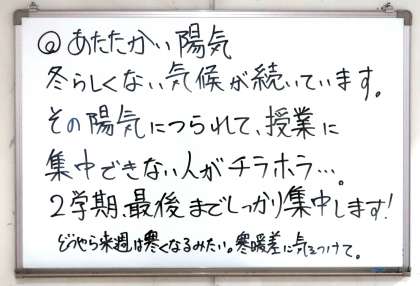 @あたたかい陽気
冬らしくない気候が続いています。
その陽気につられて、授業に
集中できない人がチラホラ…。
2学期、最後までしっかり集中します!
どうやら来週は寒くなるみたい。寒暖差に気をつけて。